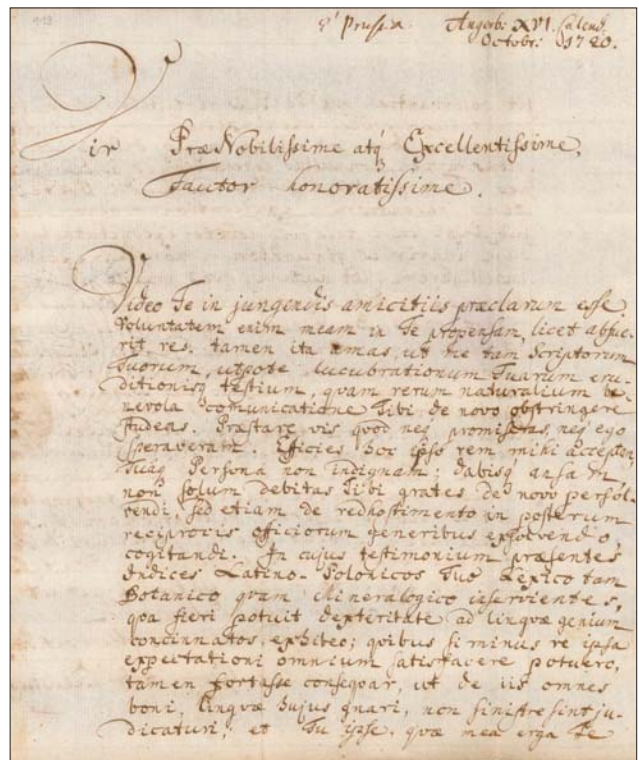 é Prussia Angerb: XVI. Calend:
Octobr: 1720.
Vir PræNobilissime atq Excellentissime,
Fautor honoratissime.
Video Te in jungendis amicitiis præclarum esse.
Voluntatem enim meam in Te propensam, licet abfue-
rit res, tamen ita amas, ut me tam Scriptorum
Tuorum, utpote lucubrationum Tuarum eru-
ditionisq testium, quam rerum naturalium be-
nevola communicatione Tibi de novo obstringere
studeas. Præstare vis quod neq promiseras, neq ego
speraveram. Efficies hoc ipso rem mihi acceptam,
Tuaq Persona non indignam; dabisq ansam
non solum debitas Tibi grates de novo persol-
vendi, sed etiam de redhostimento in posterum
reciprocis officiorum generibus exsolvendo,
cogitandi. In cujus testimonium præsentes
Indices Latino-Polonicos Tuo Lexico tam
Botanico quam Mineralogico inservientes,
qoa fieri potuit dexteritate ad linguæ genium
concinnatos, exhibeo; quibus si minus re ipsa
expectationi omnium satisfacere potuero,
tamen fortasse conseqoar, ut de iis omnes
boni, linguæ hujus gnari, non sinistre sint ju-
dicaturi; et Tu ipse, quæ mea erga Te